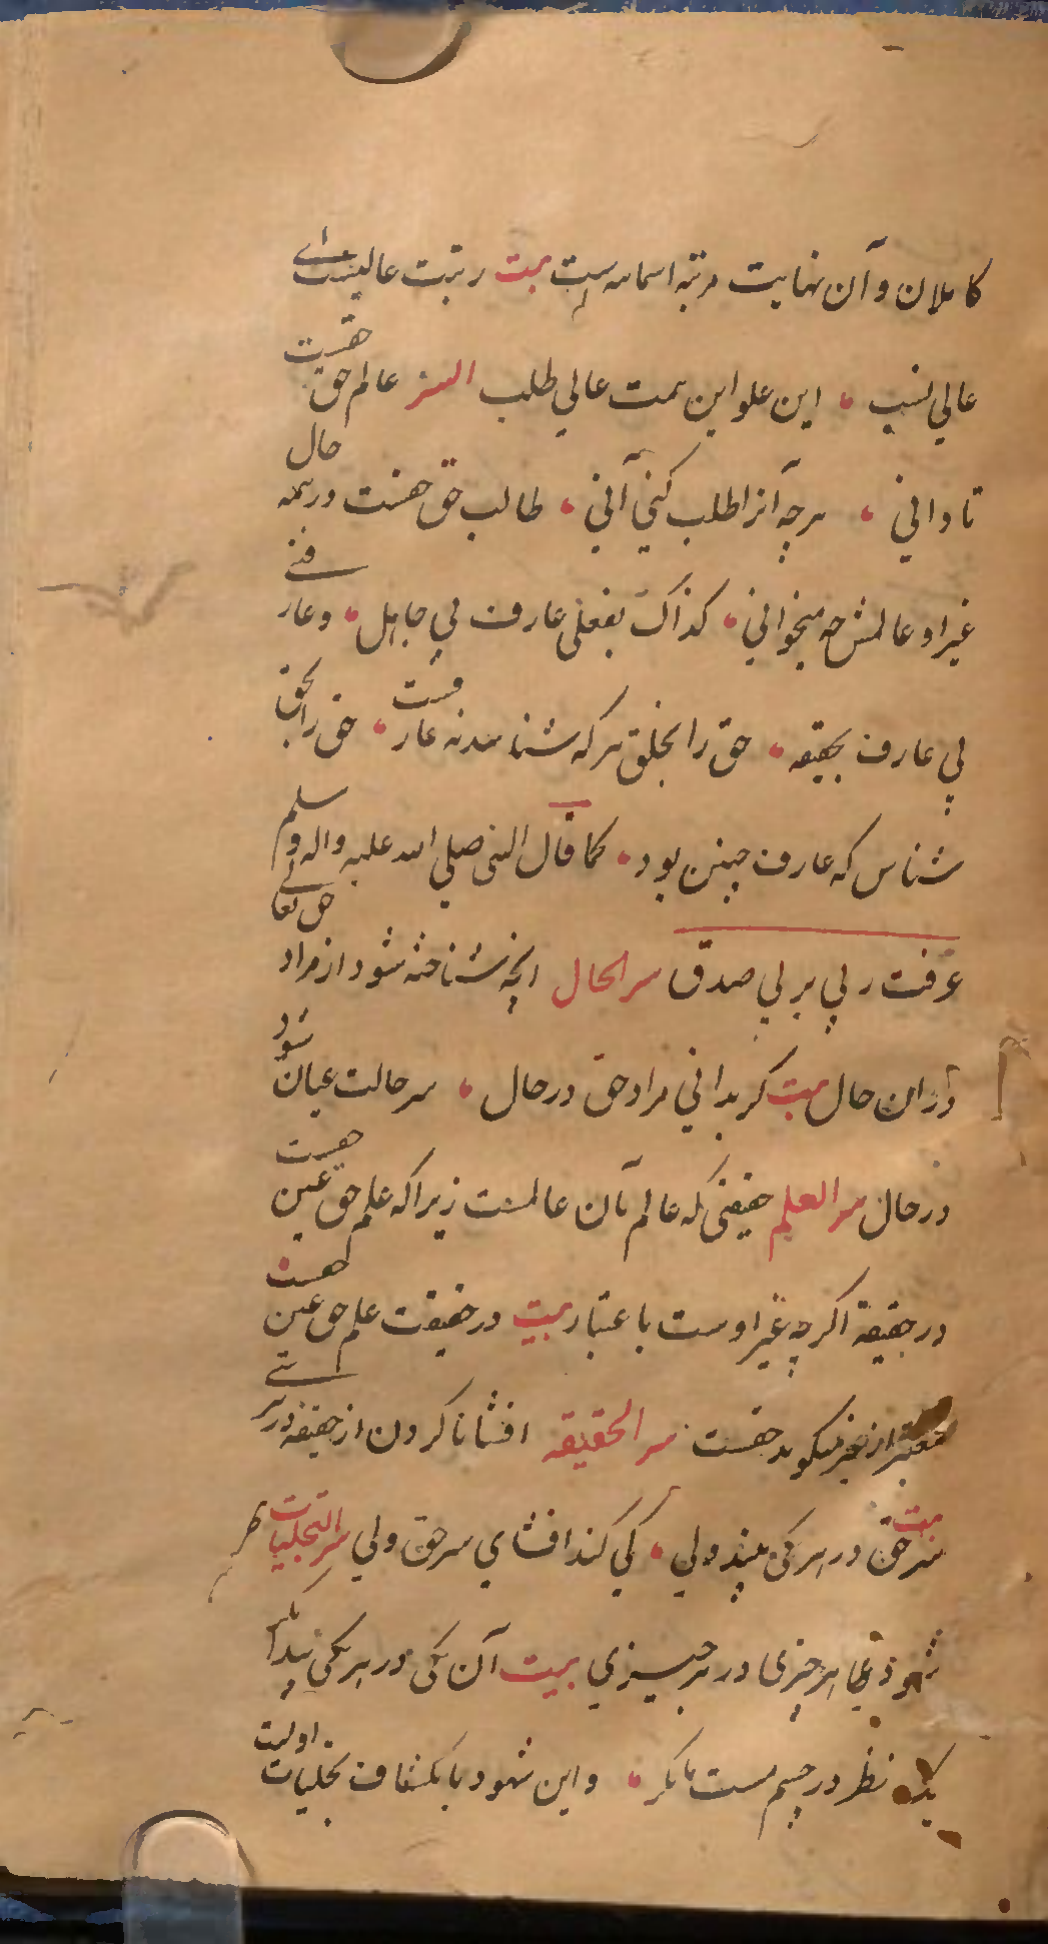 کاملان و آن نهایت مرتبه اسمائیه است بیت رتبت عالیست ای
عالی نسب • این علو این همت عالی طلب السر عالم حق هست
تا دانی • هرچه آنرا طلب کنی آنی • طالب حق هست در همه حال
غیر او عالمش چه میخوانی • کذاک بفعلی عارف لی جاهل • و عارفنی
لی عارف بحقیقه • حق را بخلق هرکه شناسد نه عارفست • حق را بحق
شناس که عارف چنین بود • کما قال النبی صلی الله علیه و اله و سلم
عرفت ربی بربی صدق سر الحال انچه شناخته شود از مراد حق تعالی
در ان حال بیت گر بدانی مراد حق در حال • سر حالت عیان شود
در حال سر العلم حقیقتی که عالم بآن عالمست زیرا که علم حق عین حقست
در حقیقة اگرچه غیر اوست باعتبار بیت در حقیقت علم حق عین حقست
معتبر از غیر میگوید حقست سر الحقیقه افشا ناکردن از حقیقة در هر شئی
بیت سر حق در هر که بیند ولی • کی کند افشای سر حق ولی سر التجلیات
شهود هر چیزی در هر چیزی بیت آن یکی در هر یکی پیدا نگر
یک نظر در چشم مست ما نگر • و این شهود بانکشاف تجلیات اولست